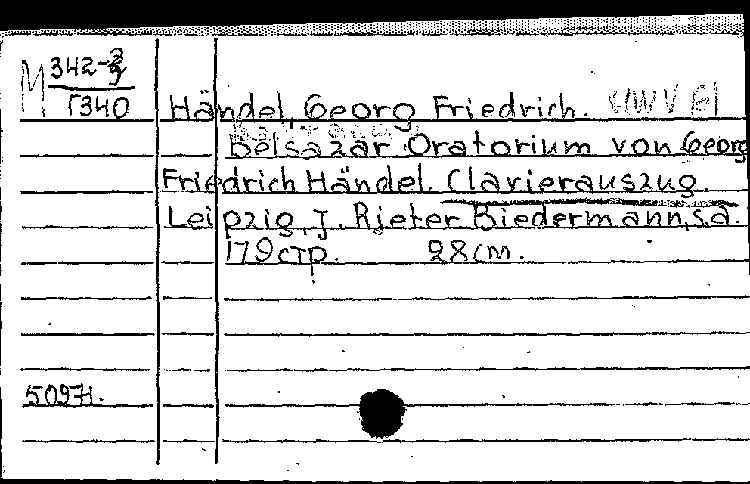 M 342-3
1340 Händel, Georg Friedrich. HWV 61
Belsazar Oratorium von Georg
Friedrich Händel. Clavierauszug.
Leipzig, J. Rieter Biedermann, s.a.
179 стр. 28 cm.
5097H.